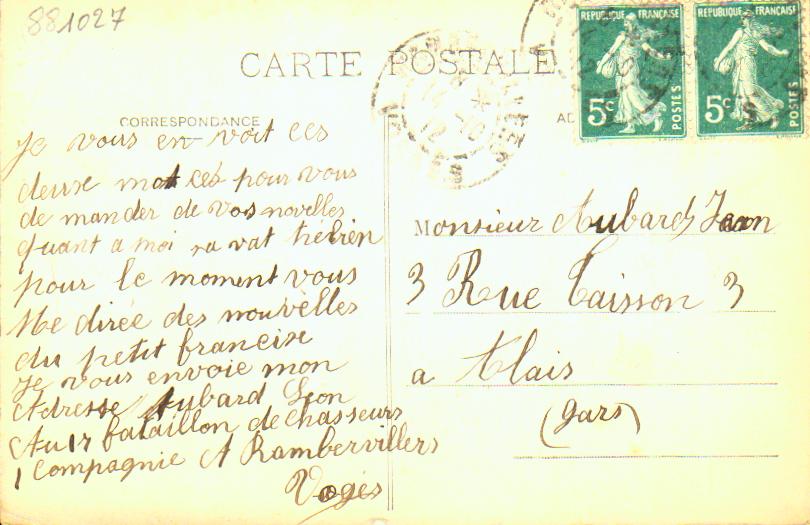 881027
CARTE POSTALE
REPUBLIQUE FRANÇAISE
5c
POSTES
REPUBLIQUE FRANÇAISE
5c
POSTES
CORRESPONDANCE
Je vous en voit ces
deuse mot ces pour vous
de mander de vos novelles
quant a moi sa vat trebien
pour le moment vous
Me dirée des nouvelles
du petit francise
Je vous envoie mon
Adresse Aubard Leon
Au 17 bataillon de chasseurs
1 Compagnie A Rambervillers
Voges
Monsieur Aubard Jean
3 Rue Taisson 3
a Alais
(gars)